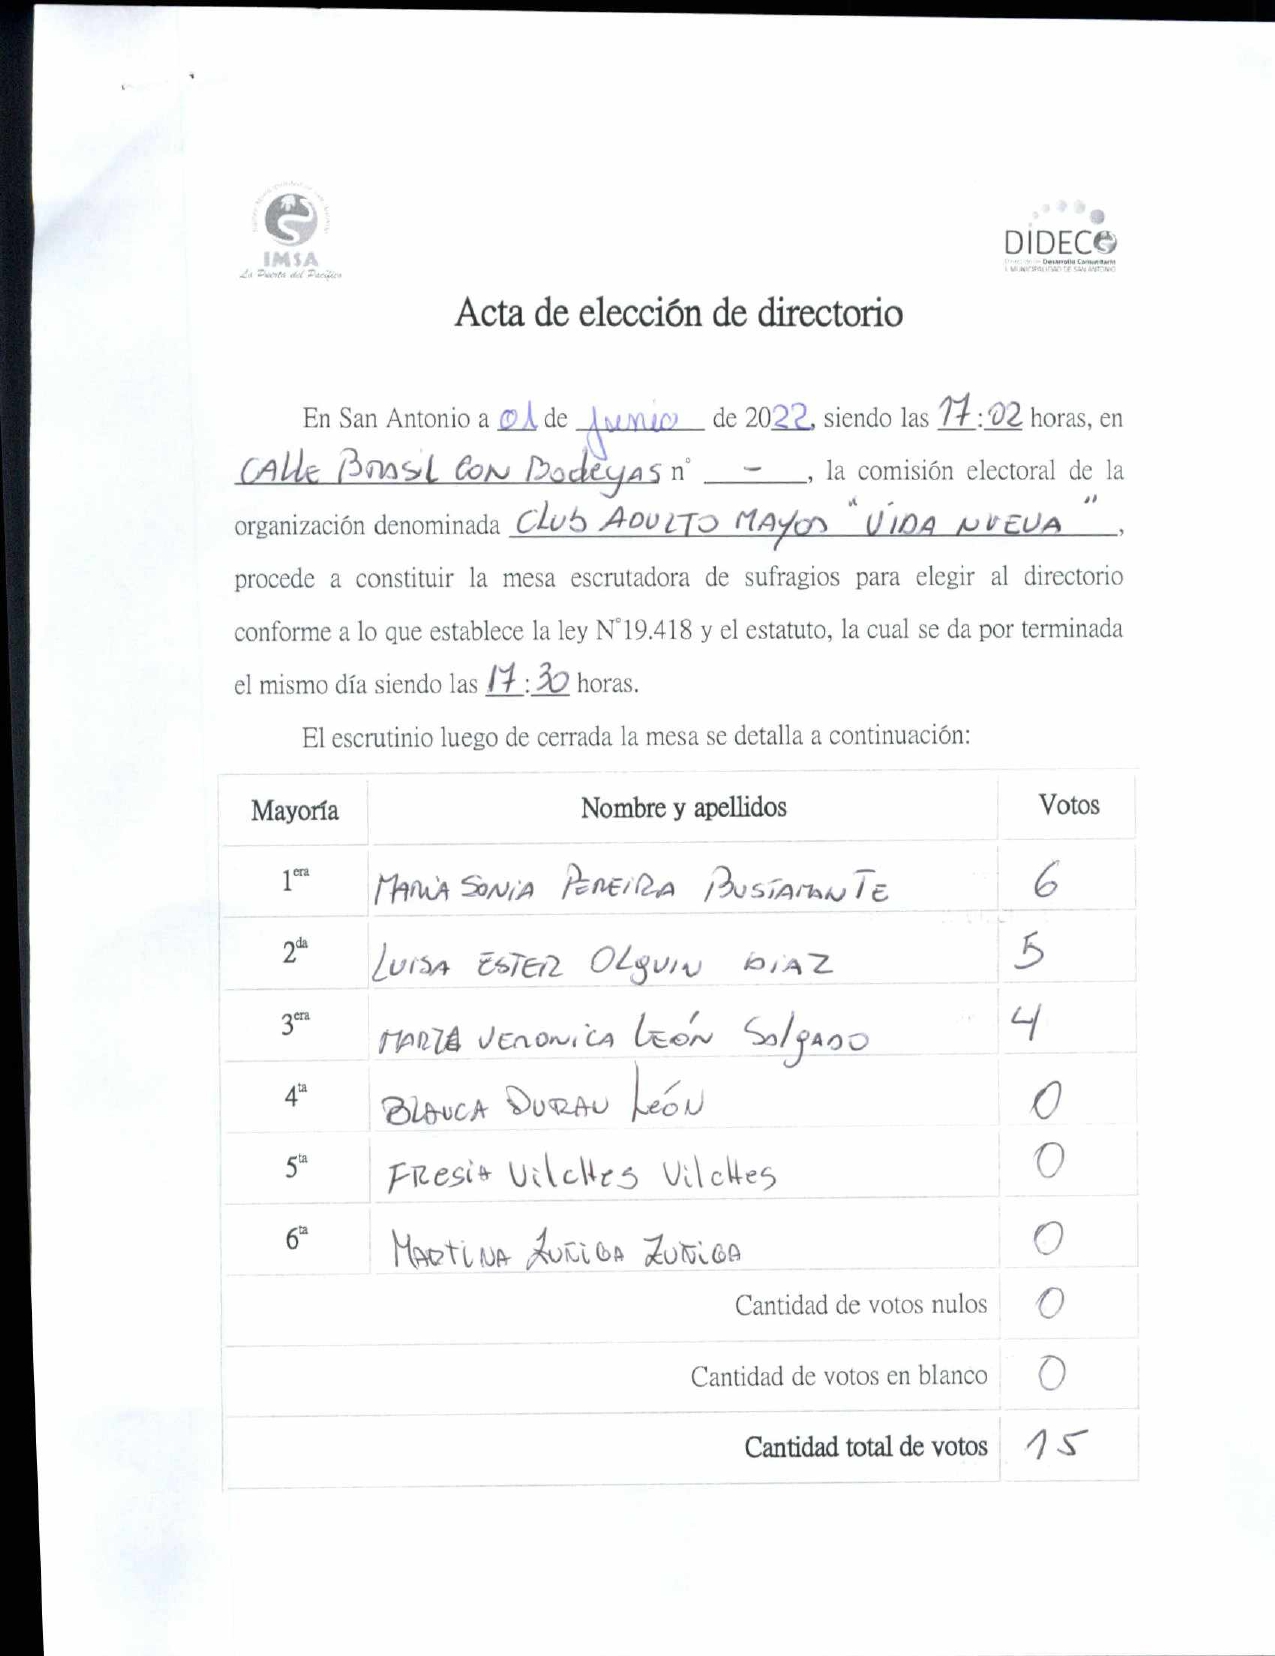 IMSA
La Puerta del Pacífico
DIDECO
Desarrollo Comunitario
I. MUNICIPALIDAD DE SAN ANTONIO
Acta de elección de directorio
En San Antonio a 01 de Junio de 2022, siendo las 17:02 horas, en
CALLE BRASIL CON BODEGAS n° -, la comisión electoral de la
organización denominada CLUB ADULTO MAYOR "VIDA NUEVA",
procede a constituir la mesa escrutadora de sufragios para elegir al directorio
conforme a lo que establece la ley N°19.418 y el estatuto, la cual se da por terminada
el mismo día siendo las 17:30 horas.
El escrutinio luego de cerrada la mesa se detalla a continuación:
Mayoría Nombre y apellidos Votos
1era MARIA SONIA PEREIRA BUSTAMANTE 6
2da LUISA ESTER OLGUIN DIAZ 5
3era MARIA VERONICA LEÓN SALGADO 4
4ta BLANCA DURAN LEÓN 0
5ta FRESIA VILCHES VILCHES 0
6ta MARTINA ZUÑIGA ZUÑIGA 0
Cantidad de votos nulos 0
Cantidad de votos en blanco 0
Cantidad total de votos 15